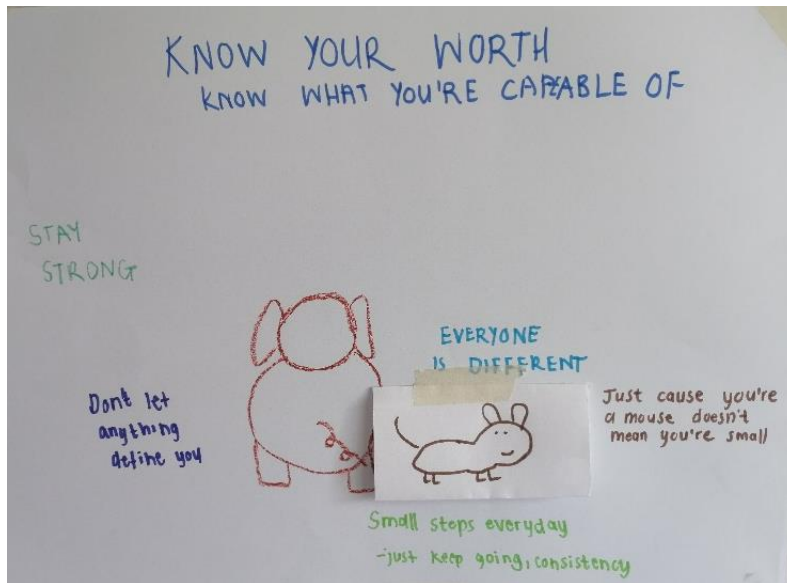 KNOW YOUR WORTH
KNOW WHAT YOU'RE CAPABLE OF
STAY
STRONG
EVERYONE
IS DIFFERENT
Don't let
anything
define you
Just cause you're
a mouse doesn't
mean you're small
Small steps everyday
-just keep going, consistency